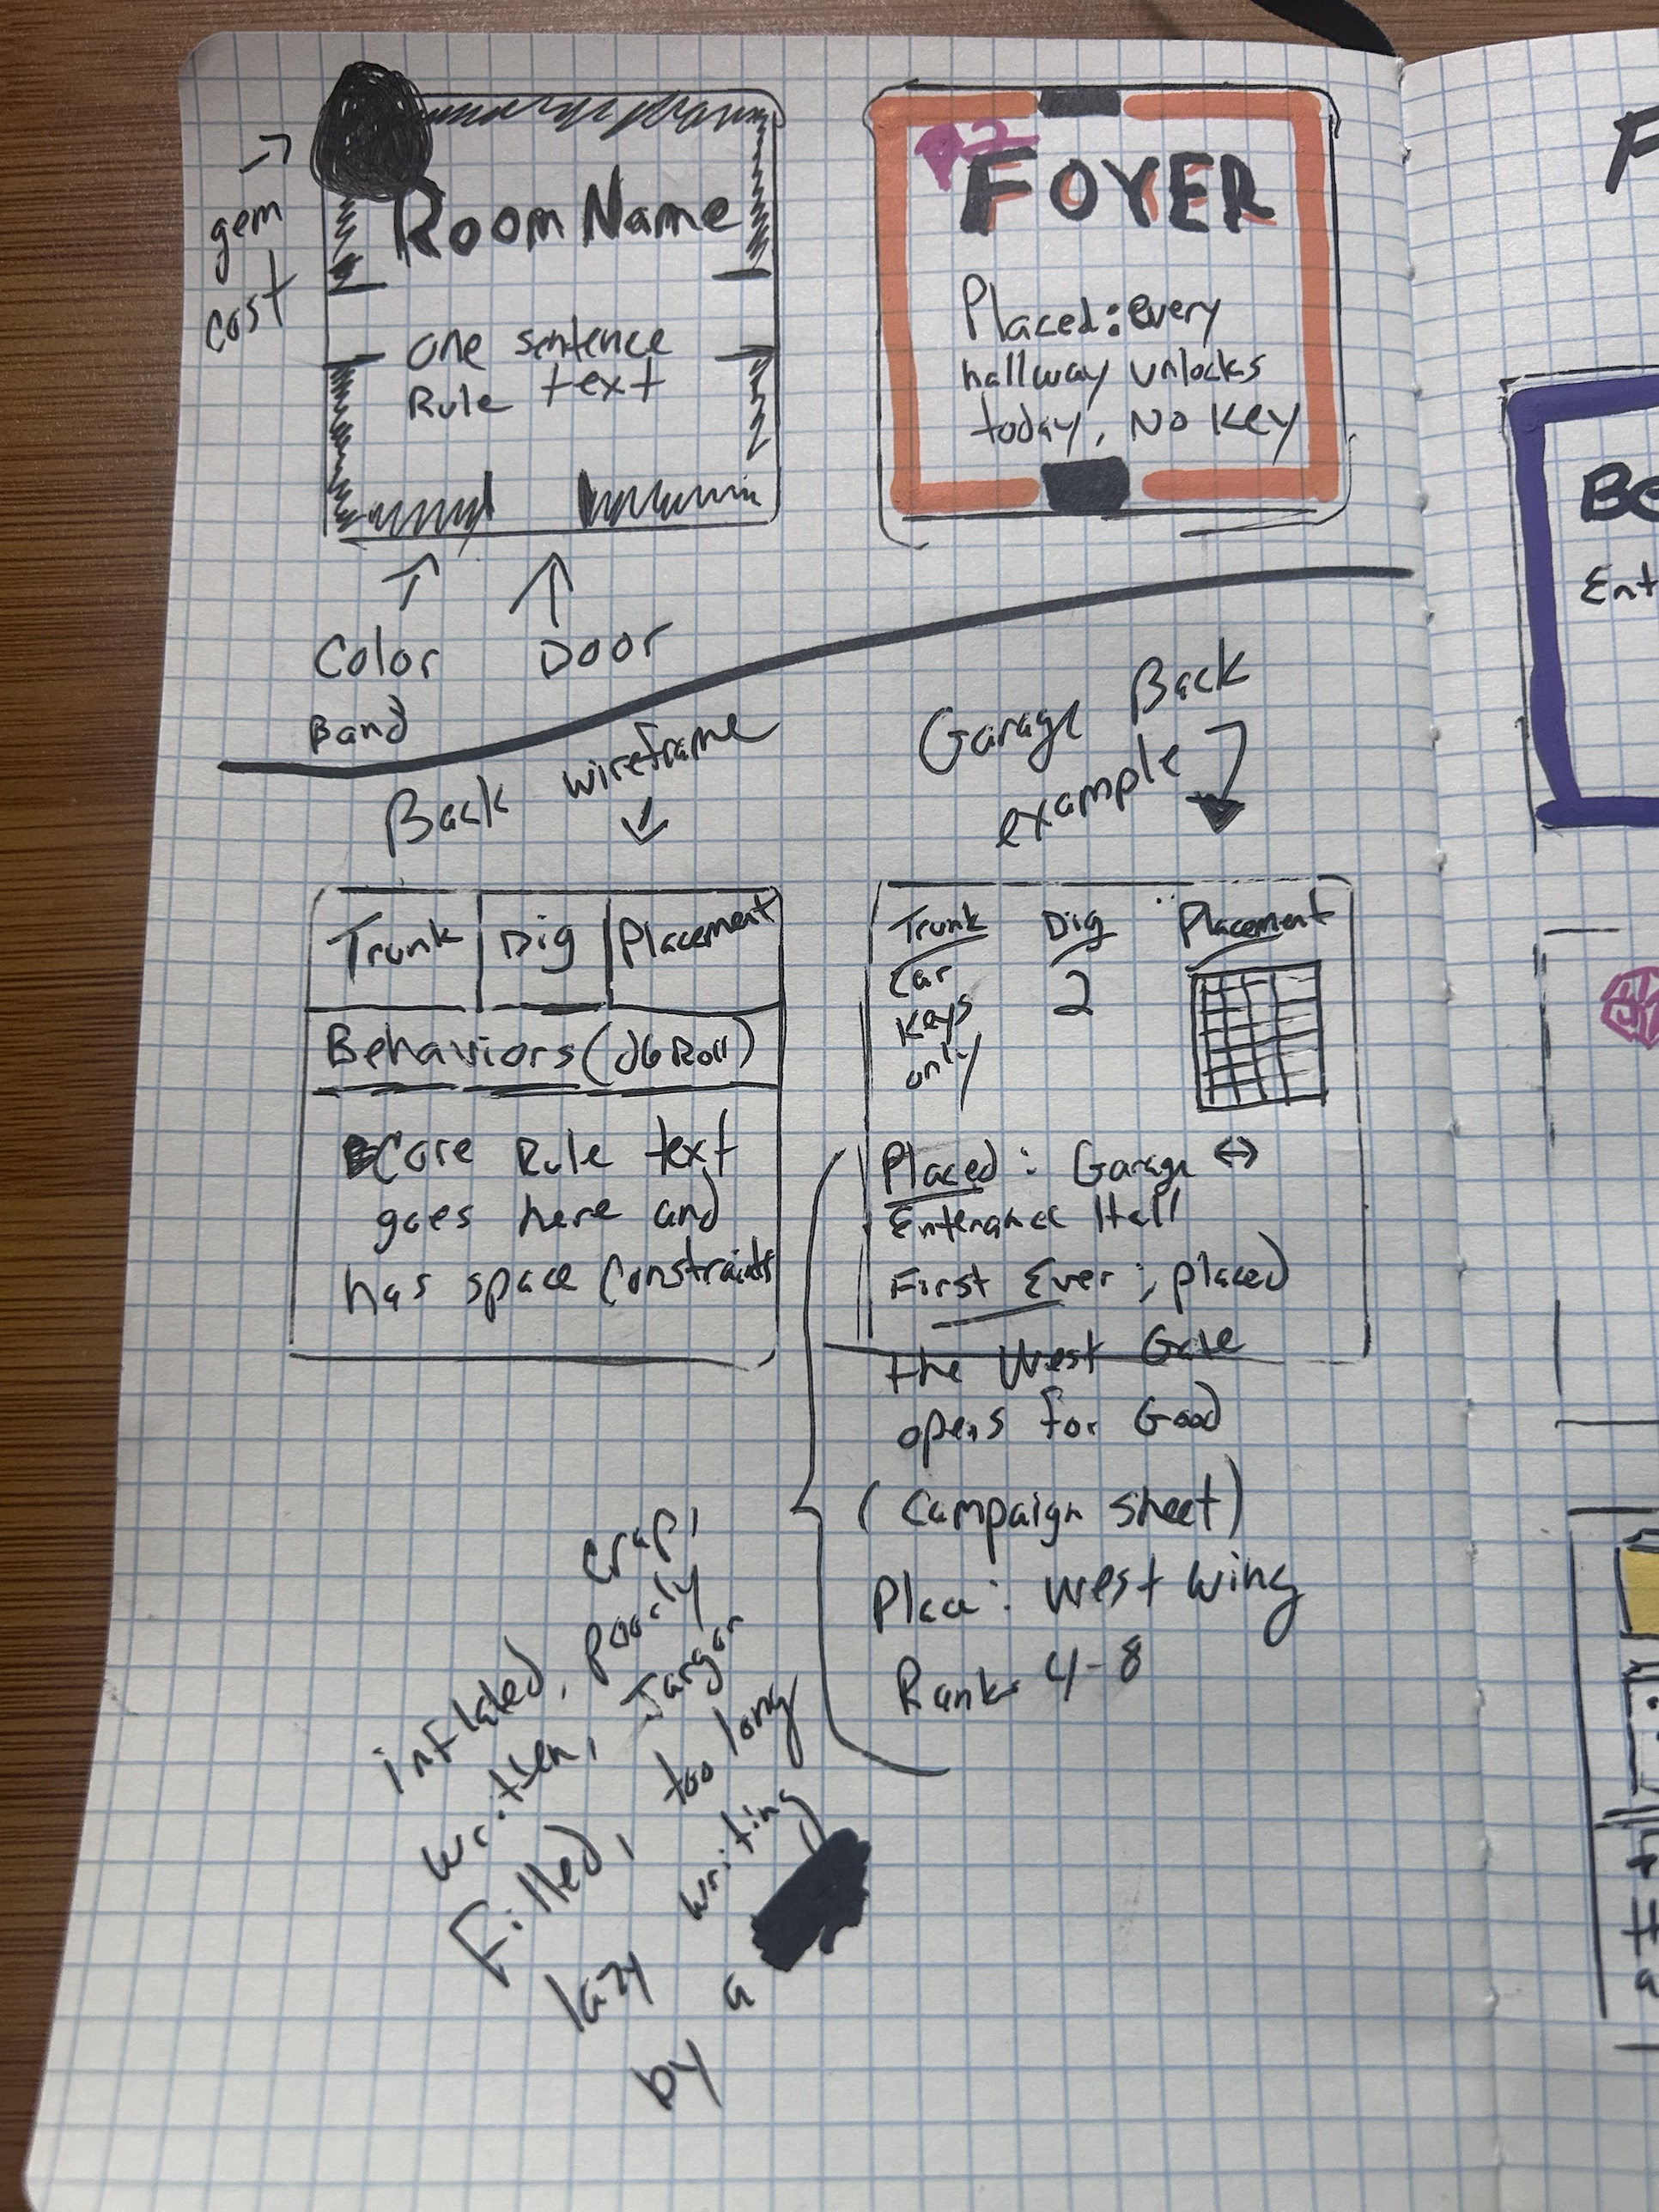 gem
cost
Room Name
one sentence
Rule text
Color
Band
Door
FOYER
Placed: every
hallway unlocks
today, No Key
Back wireframe
Trunk
Dig
Placement
Behaviors (d6 Roll)
Core Rule text
goes here and
has space constraints
Garage Back
example
Trunk
Dig
Placement
Car
Keys
only
2
Placed: Garage ↔
Hall
First Ever; placed
the West Gate
opens for Good
(Campaign sheet)
West Wing
Rank 4-8
crap,
inflated, poorly
written, Jargon
Filled, too long
lazy writing
by a
F
Be
Ent